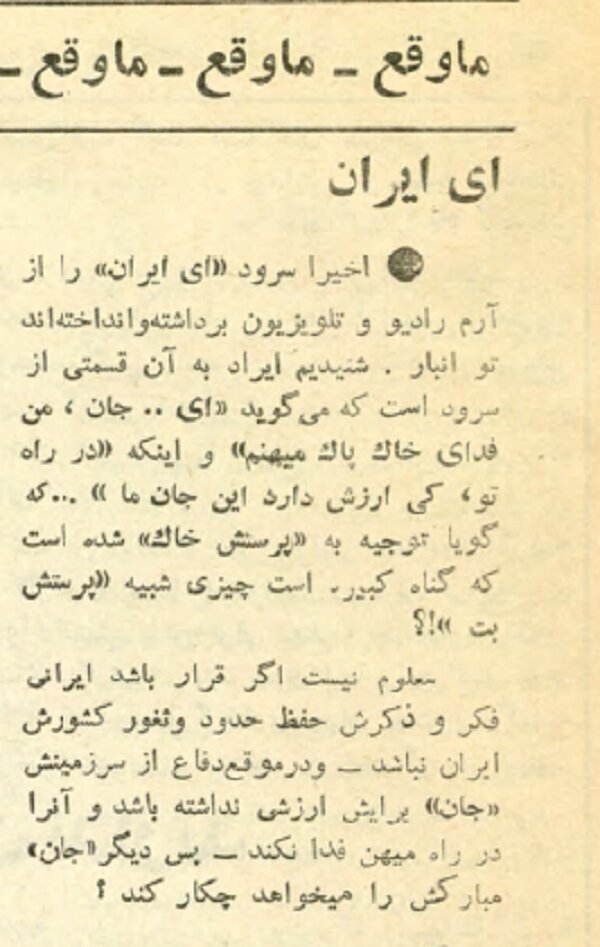 ماوقع ــ ماوقع ــ ماوقع ــ
ای ایران
● اخیرا سرود «ای ایران» را از
آرم رادیو و تلویزیون برداشته‌وانداخته‌اند
تو انبار . شنیدیم ایراد به آن قسمتی از
سرود است که می‌گوید «ای .. جان ، من
فدای خاك پاك میهنم» و اینکه «در راه
تو، کی ارزش دارد این جان ما » ...که
گویا توجیه به «پرستش خاك» شده است
که گناه کبیره است چیزی شبیه «پرستش
بت »!؟
معلوم نیست اگر قرار باشد ایرانی
فکر و ذکرش حفظ حدود وثغور کشورش
ایران نباشد ــ ودرموقع‌دفاع از سرزمینش
«جان» برایش ارزشی نداشته باشد و آنرا
در راه میهن فدا نکند ــ پس دیگر«جان»
مبارکش را میخواهد چکار کند ؟